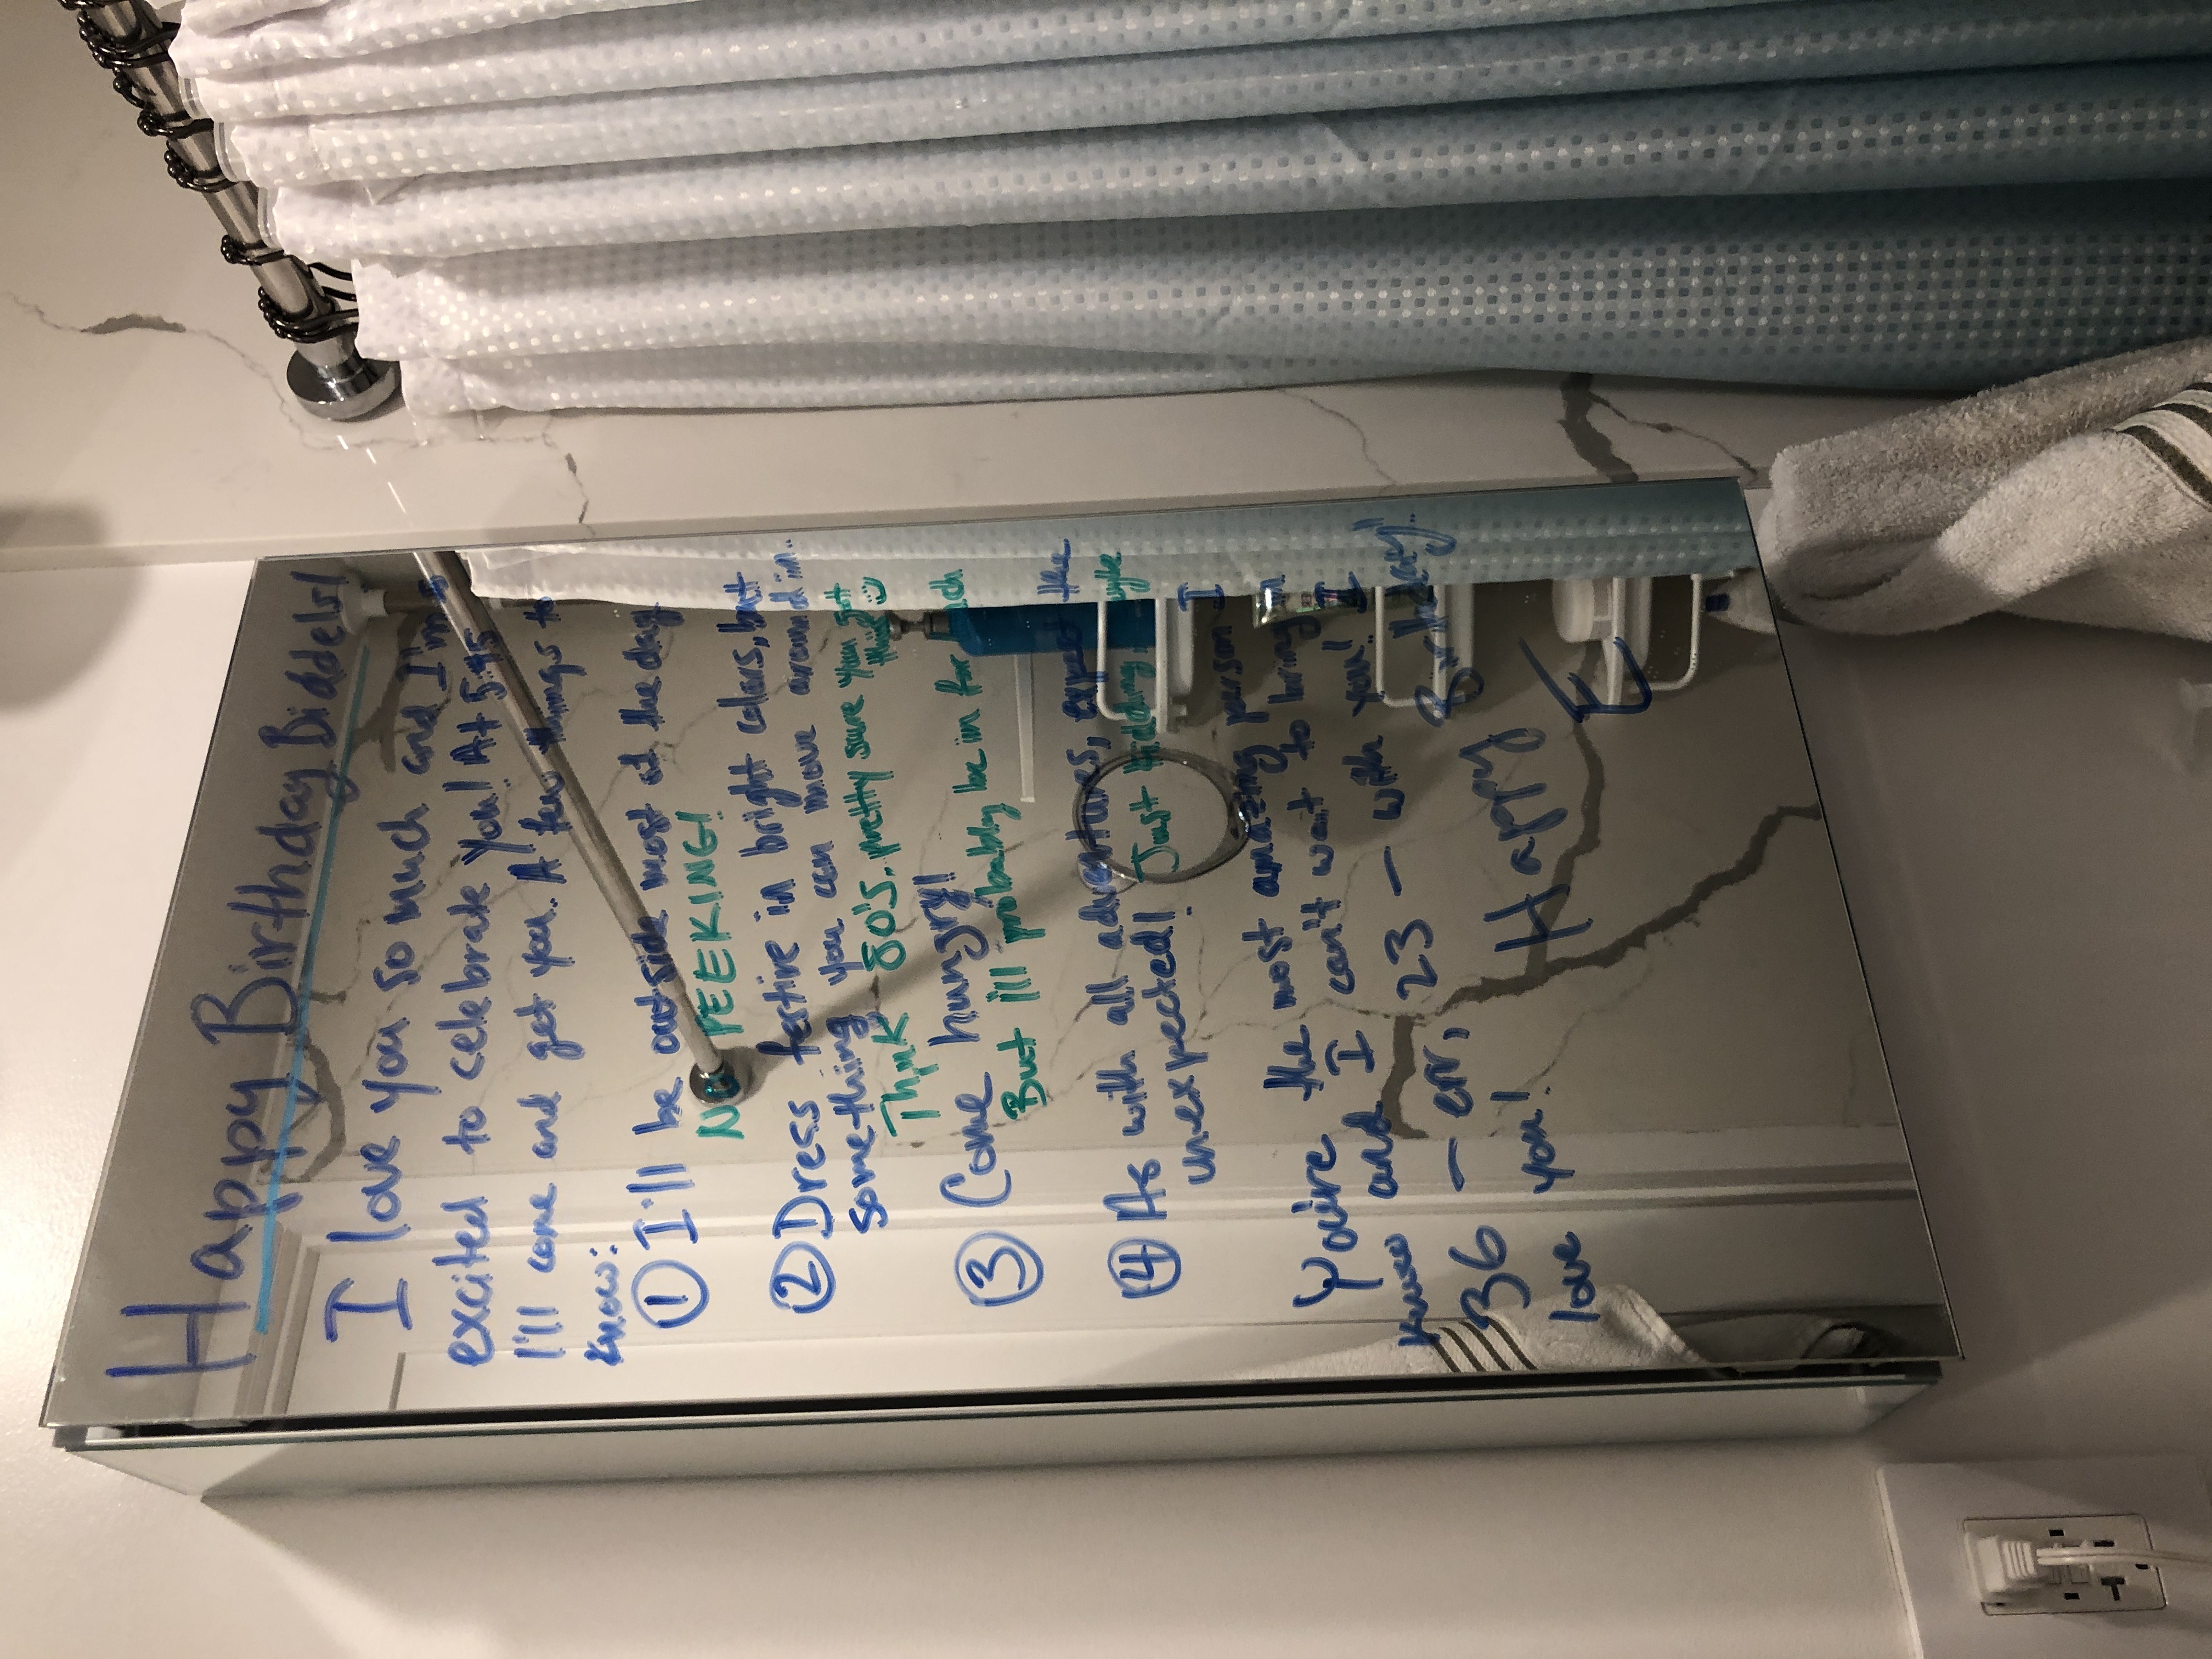 Happy Birthday Biddels!
I love you so much and I'm so
excited to celebrate you! At 5:45
I'll come and get you. A few things to
know:
① I'll be outside most of the day
NO PEEKING!
② Dress festive in bright colors, but
something you can move around in.
Think 80's. pretty sure you got
this :)
③ Come hungry!
But i'll probably be in for lunch
④ As with all adventures, expect the
unexpected! Just kidding, maybe
You're the most amazing person I
know and I can't wait to bring in
36 – err, 23 – with you! I
love you!
Happy Birthday!
E